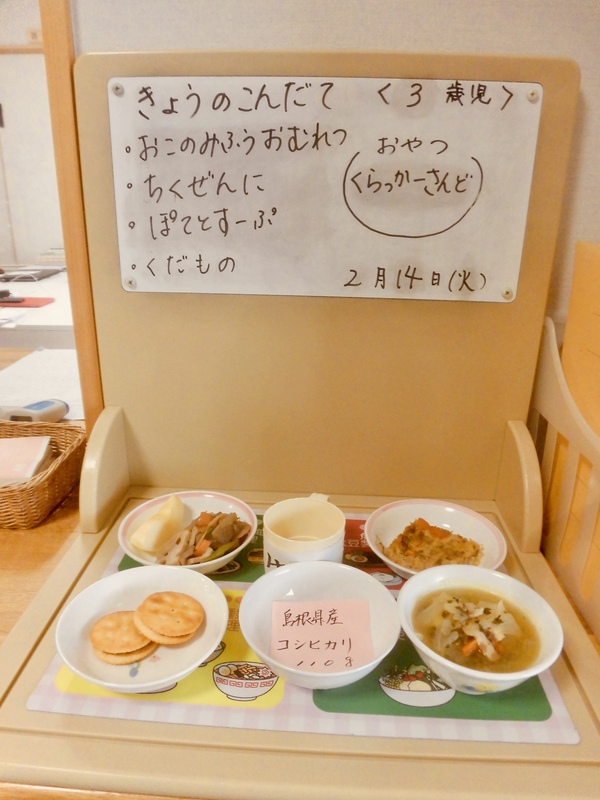 きょうのこんだて 〈3歳児〉
・おこのみふうおむれつ
・ちくぜんに
・ぽてとすーぷ
・くだもの
おやつ
くらっかーさんど
2月14日(火)
島根県産
コシヒカリ
110g